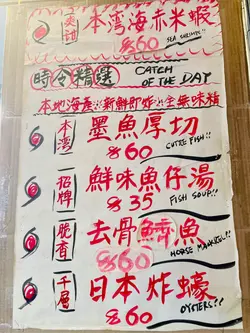 爽甜 本湾海赤米蝦
$60 SEA SHRIMPS!!
時令精選 CATCH OF THE DAY
本地海產※新鮮即炸※全無味精
本湾 墨魚厚切
$60 CUTTLE FISH!!
招牌 鮮味魚仔湯
$35 FISH SOUP!!
脆香 去骨鱭魚
$60 HORSE MACKREL!!
千層 日本炸蠔
$60 OYSTERS!!